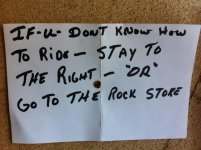 IF-U- DON'T KNOW HOW
TO RIDE - STAY TO
THE RIGHT - "OR"
GO TO THE ROCK STORE